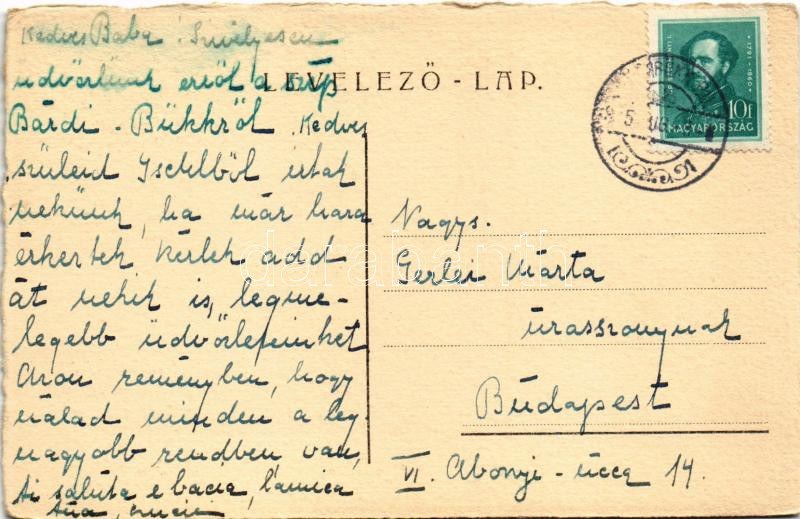 Kedves Baba! Szívélyesen
üdvözlünk erről a szép
LEVELEZŐ - LAP.
Bárdi - Bükkről. Kedves
szüleid Ischlből írtak
nekünk, ha már haza
érkertek, kérlek add
át nekik is, legme-
legebb üdvözleteinket
Azon reményben, hogy
nálad minden a leg-
nagyobb rendben van,
ti saluta e bacia, l'amica
tua,
1791-1860
10f
MAGYARORSZÁG
Nagys.
Gerlei Márta
úrasszonynak
Budapest
VI. Abonyi - ucca 14.